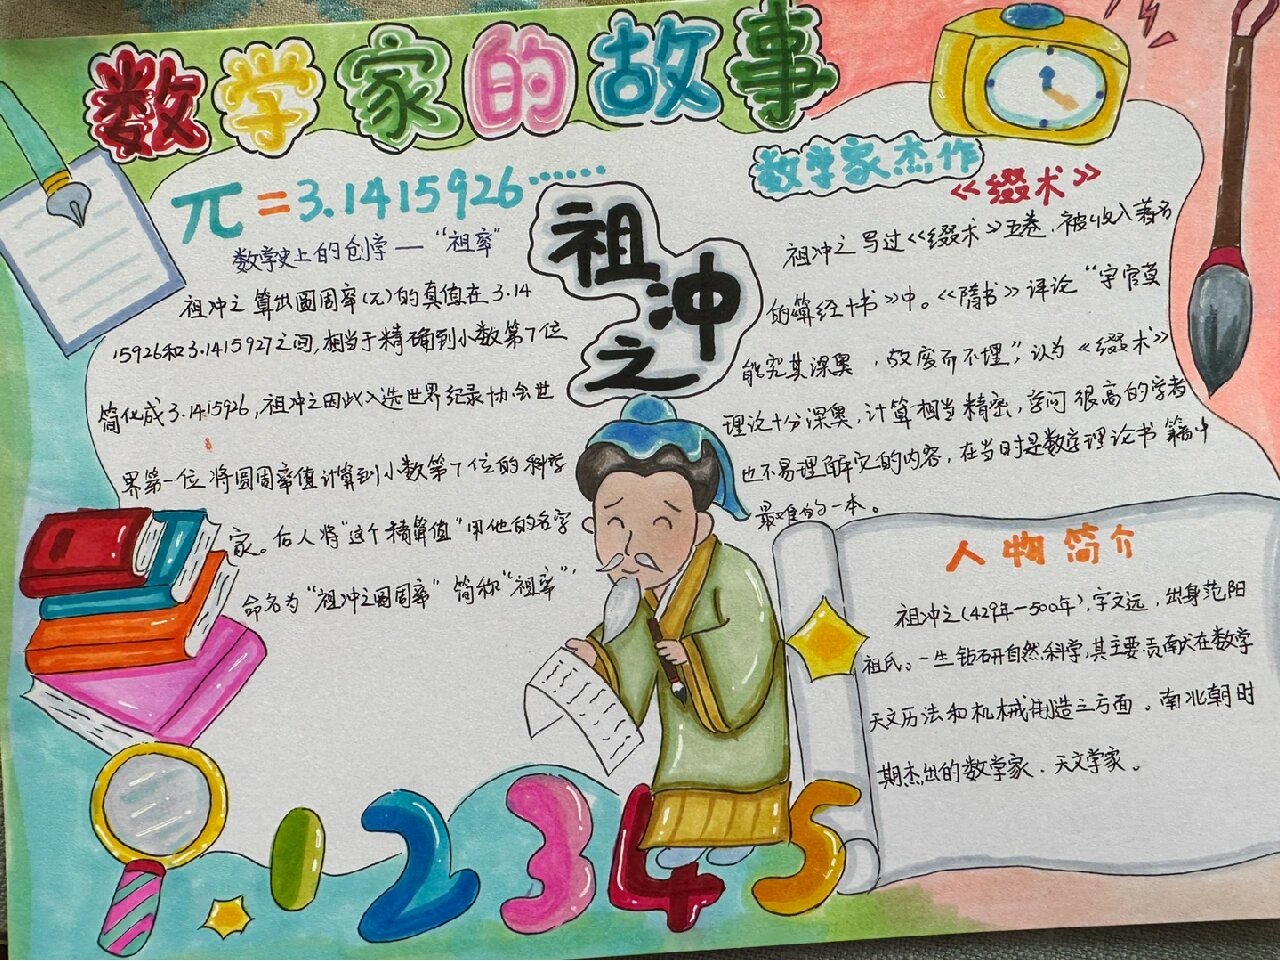 数学家的故事
π=3.1415926……
数学史上的创学—"祖率"
祖冲之算出圆周率(π)的真值在3.14
15926和3.1415927之间,相当于精确到小数第7位
简化成3.1415926,祖冲之因此入选世界纪录协会世
界第一位将圆周率值计算到小数第7位的科学
家。后人将"这个精算值"用他的名字
命名为"祖冲之圆周率"简称"祖率"
祖冲之
数学家杰作
《缀术》
祖冲之写过《缀术》五卷,被收入著名
的算经十书》中。《隋书》评论"学官莫
能究其深奥,故废而不理",认为《缀术》
理论十分深奥,计算相当精密,学问很高的学者
也不易理解它的内容,在当时是数学理论书籍中
最难的一本。
人物简介
祖冲之(429年—500年),字文远,出身范阳
祖氏。一生钻研自然科学,其主要贡献在数学
天文历法和机械制造三方面。南北朝时
期杰出的数学家、天文学家。
12345